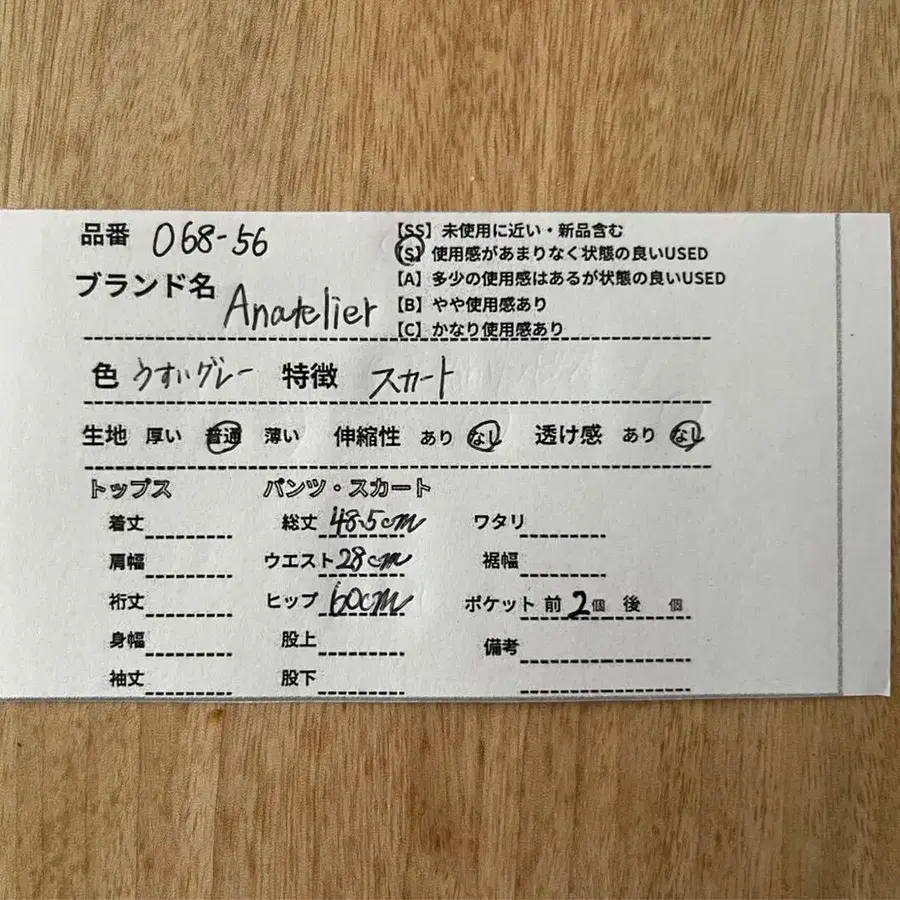 品番 068-56
【SS】未使用に近い・新品含む
【S】使用感があまりなく状態の良いUSED
【A】多少の使用感はあるが状態の良いUSED
【B】やや使用感あり
【C】かなり使用感あり
ブランド名 Anatelier
色 うすいグレー 特徴 スカート
生地 厚い 普通 薄い 伸縮性 あり なし 透け感 あり なし
トップス パンツ・スカート
着丈 総丈 48.5cm ワタリ
肩幅 ウエスト 28cm 裾幅
裄丈 ヒップ 60cm ポケット 前 2個 後 個
身幅 股上 備考
袖丈 股下